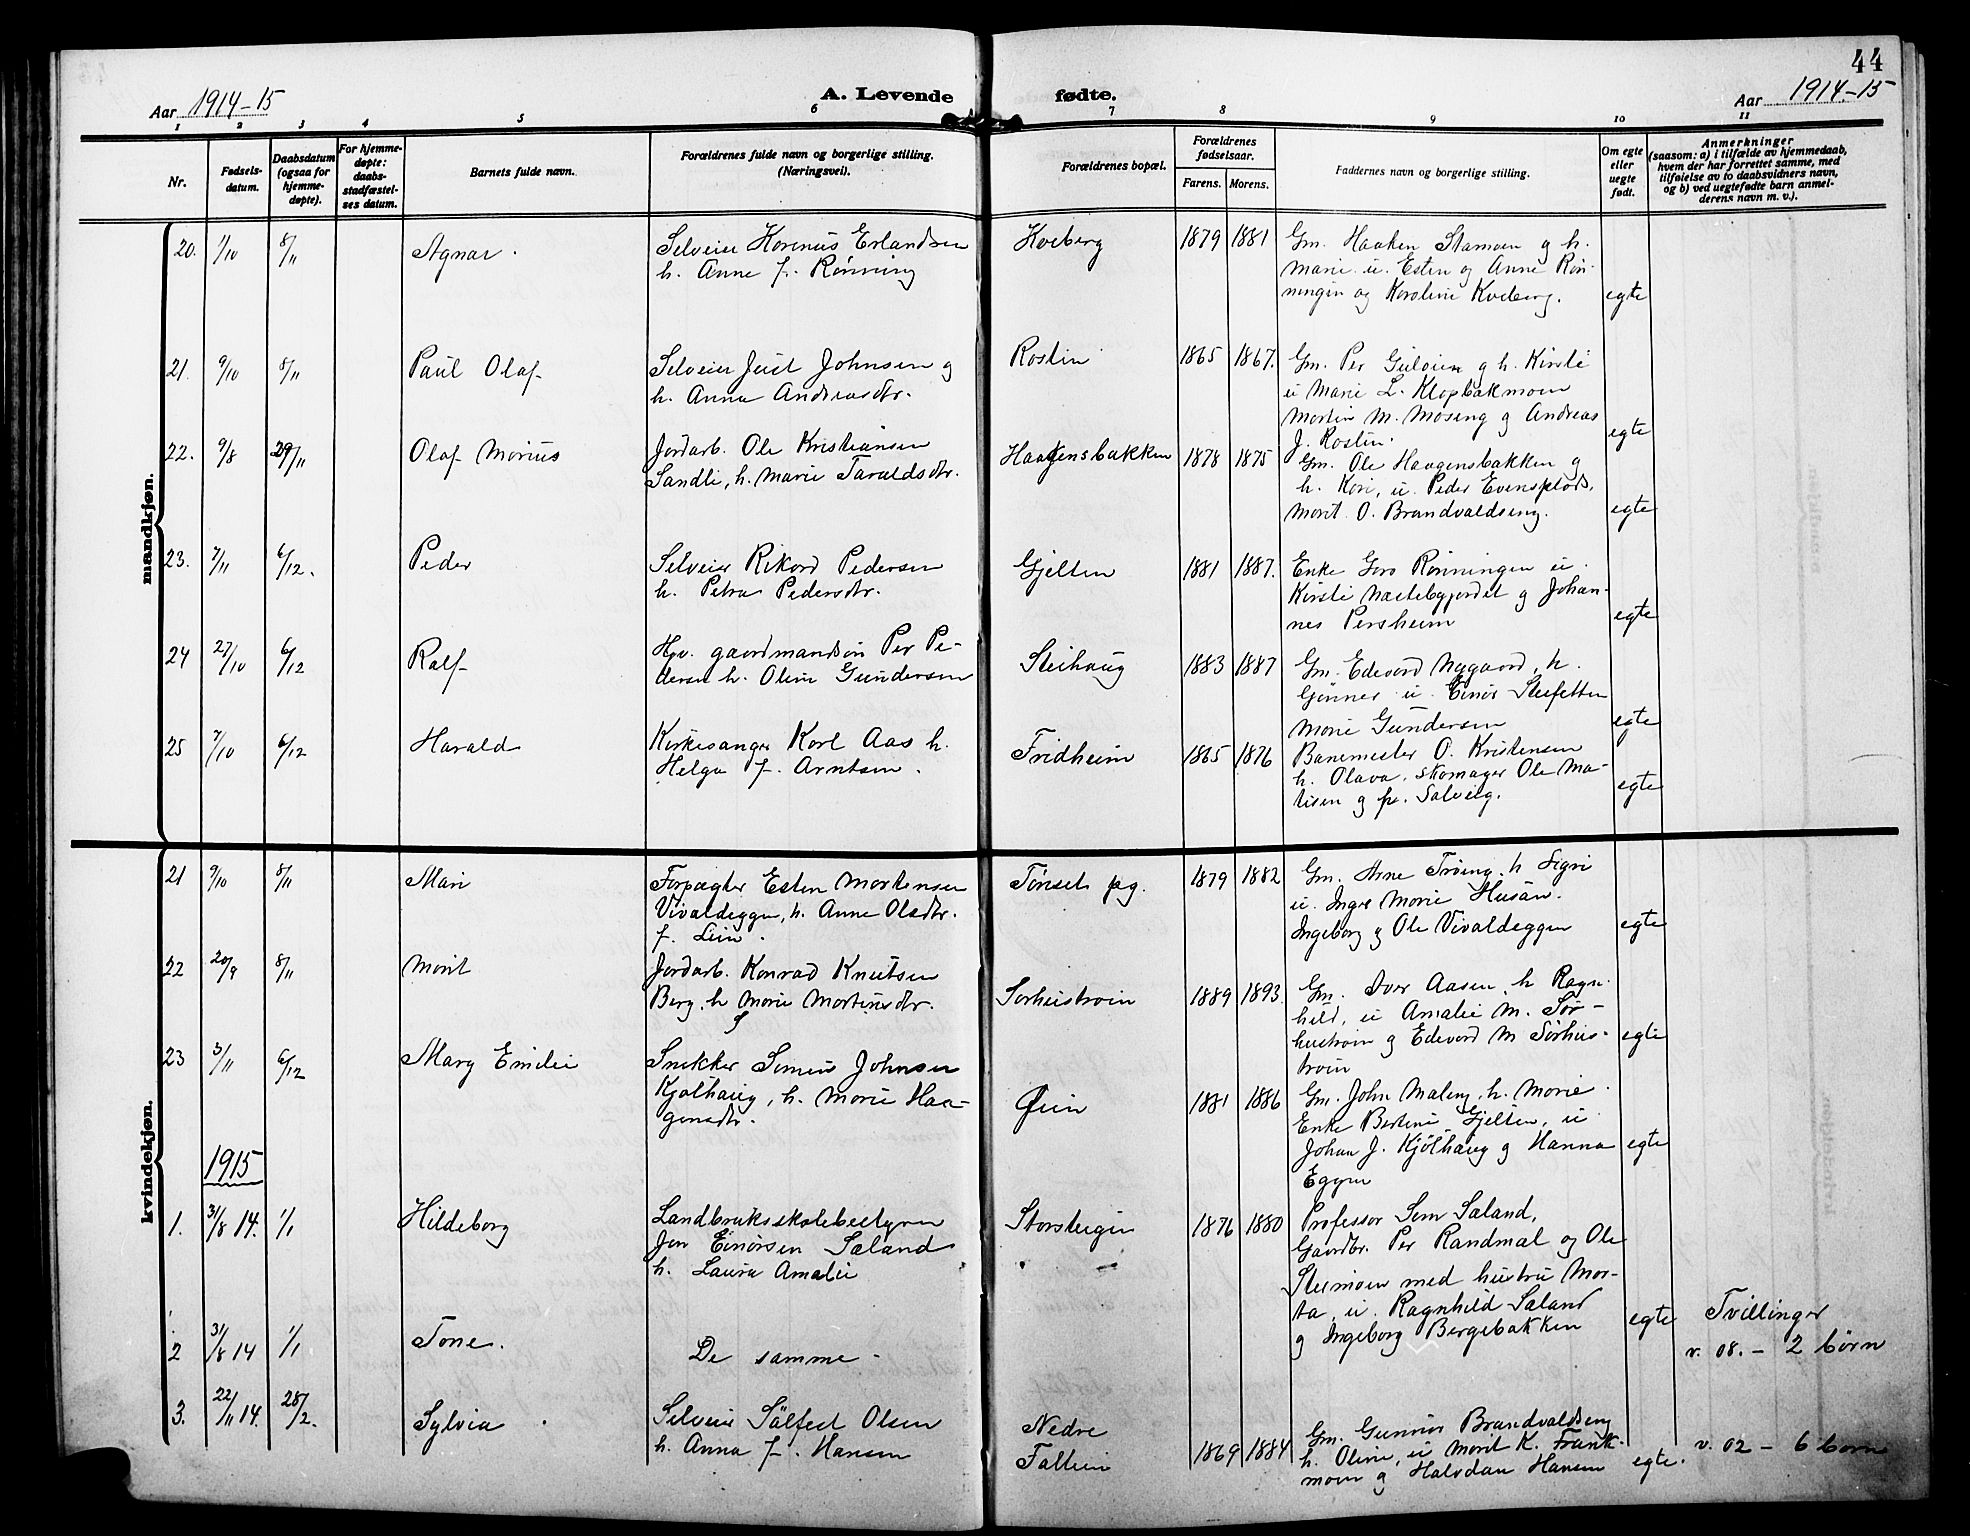 44
Aar 1914-15
A. Levende fødte.
Aar 1914-15
1 2 3 4 5 6 7 8 9 10 11
Nr.
Fødsels-
datum.
Daabsdatum
(ogsaa for
hjemme-
døpte).
For hjemme-
døpte:
daabs-
stadfæstel-
ses datum.
Barnets fulde navn.
Forældrenes fulde navn og borgerlige stilling.
(Næringsvei).
Forældrenes bopæl.
Forældrenes
fødselsaar.
Farens. Morens.
Faddernes navn og borgerlige stilling.
Om egte
eller
uegte
født.
Anmerkninger
(saasom: a) i tilfælde av hjemmedaab,
hvem der har forrettet samme, med
tilføielse av to daabsvidners navn,
og b) ved uegtefødte barn anmel-
derens navn m. v.).
mandkjøn.
20. 1/10 8/11 Agnar.
Selveier Korenus Erlandsen
h. Anne f. Rønning
Kveberg 1879 1881
Gm. Haaken Stamoen g h.
Marie u. Esten og Anne Røn-
ningen og Karoline Kveberg. egte
21. 9/10 8/11 Paul Olaf
Selveier Juel Johnsen g
h. Anna Andreasdtr.
Rostin 1865 1867.
Gm. Per Gulvien g h. Kirsti
u Marie L. Klopbakmoen
Morten M. Moseng g Andreas
J. Rostin. egte
22. 9/8 29/11 Olaf Marius
Jordarb. Ole Kristiansen
Sandli, h. Marie Taraldsdtr.
Haagensbakken 1878 1875
Gm. Ole Haagensbakken g
h. Kari, u. Peder Evensplads,
Marit O. Brandvaldseng. egte
23. 7/11 6/12. Peder
Selveier Rikard Pedersen
h. Petra Pedersdtr.
Gjelten 1881 1887.
Enke Goro Rønningen u.
Kirsti Næstebyjordet g Johan-
nes Persheim egte
24 27/10 6/12 Ralf
Hpv. gaardmandsøn Per Pe-
dersen h. Oline Gundersen
Steihaug 1883 1887
Gm. Edvard Nygaard, h.
Gunnes u. Einar Steifetten
Marie Gundersen egte
25 7/10 6/12 Harald
Kirkesanger Karl Aas h.
Helga f. Arntsen.
Fridheim 1865 1876
Banemester O. Kristensen
h. Olava, skomager Ole Ma-
tisen g fr. Solveig. egte
kvindekjøn.
21 9/10 8/11 Mari
Forpagter Esten Mortensen
Vivaldeggen, h. Anne Olsdtr.
f. Lien.
Tønset pg. 1879 1882
Gm. Arne Trøeng, h Sigri
u. Inger Marie Husan.
Ingeborg g Ole Vivaldeggen egte
22 20/9 8/11 Marit
Jordarb. Konrad Knutsen
Berg, h Marie Mortensdtr.
Sørhustrøin 1889 1893.
Gm. Iver Aasen, h Ragn-
hild, u Amalie M. Sør-
hustrøin g Edvard M Sørhus-
trøin egte
23 3/11 6/12 Mary Emilie
Snekker Simen Johnsen
Kjølhaug, h. Marie Haa-
gensdtr.
Øien 1881 1886
Gm. John Maleng, h. Marie.
Enke Bertine Gjelten, u
Johan J. Kjølhaug g Hanna
Eggen egte
1915
1. 31/8 14. 1/1 Hildeborg
Landbruksskolebestyrer
Jon Einarsen Sæland
h. Laura Amalie
Storsteigen 1876 1880
Professor Sem Sæland,
Gaardbr. Per Randmæl og Ole
Steimoen med hustru Mar-
ta, u. Ragnhild Sæland
g Ingeborg Bergebakken egte
Tvillinger
v. 08. - 2 børn
2 31/8 14 1/1 Tone.
De samme -
3. 22/11 14. 28/2. Sylvia
Selveier Sølfest Olsen
h. Anna f. Hansen
Nedre
Fallien 1869 1884
Gm. Gunnar Brandvaldseng
h. Oline, u Marit K. Trønk-
moen g Halvdan Hansen egte.
v. 02 - 6 børn